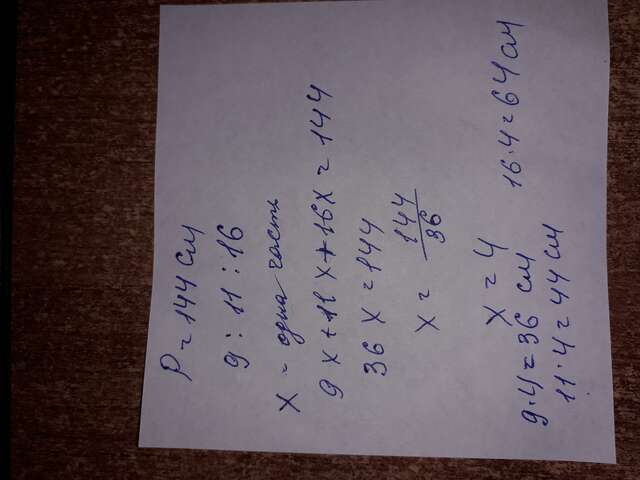 P = 144 см
9 : 11 : 16
X - одна часть
9 X + 11 X + 16X = 144
36 X = 144
X = 144/36
X = 4
9·4 = 36 см
11·4 = 44 см
16·4 = 64 см